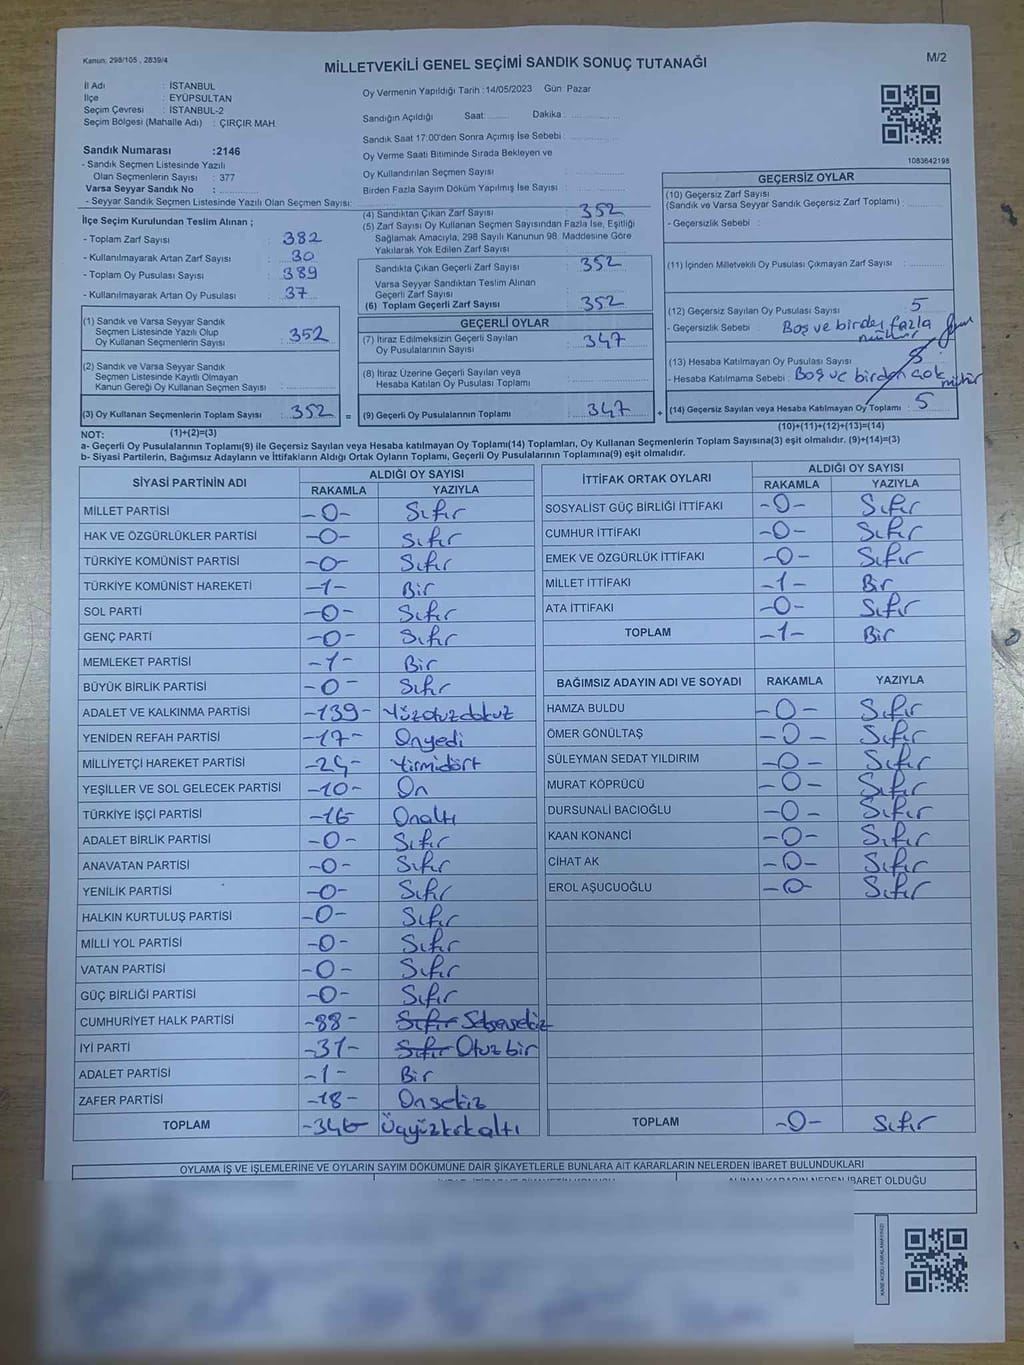 Kanun; 298/105 , 2839/4
M/2
MİLLETVEKİLİ GENEL SEÇİMİ SANDIK SONUÇ TUTANAĞI
İl Adı : İSTANBUL
İlçe : EYÜPSULTAN
Seçim Çevresi : İSTANBUL-2
Seçim Bölgesi (Mahalle Adı) : ÇIRÇIR MAH.
Sandık Numarası :2146
- Sandık Seçmen Listesinde Yazılı
Olan Seçmenlerin Sayısı : 377
Varsa Seyyar Sandık No :
- Seyyar Sandık Seçmen Listesinde Yazılı Olan Seçmen Sayısı:
Oy Vermenin Yapıldığı Tarih :14/05/2023 Gün Pazar
Sandığın Açıldığı Saat: Dakika :
Sandık Saat 17:00'den Sonra Açımış İse Sebebi :
Oy Verme Saati Bitiminde Sırada Bekleyen ve
Oy Kullandırılan Seçmen Sayısı :
Birden Fazla Sayım Döküm Yapılmış İse Sayısı :
1083642198
İlçe Seçim Kurulundan Teslim Alınan ;
- Toplam Zarf Sayısı : 382
- Kullanılmayarak Artan Zarf Sayısı : 30
- Toplam Oy Pusulası Sayısı : 389
- Kullanılmayarak Artan Oy Pusulası : 37
(1) Sandık ve Varsa Seyyar Sandık
Seçmen Listesinde Yazılı Olup
Oy Kullanan Seçmenlerin Sayısı : 352
(2) Sandık ve Varsa Seyyar Sandık
Seçmen Listesinde Kayıtlı Olmayan
Kanun Gereği Oy Kullanan Seçmen Sayısı :
(3) Oy Kullanan Seçmenlerin Toplam Sayısı : 352 =
(4) Sandıktan Çıkan Zarf Sayısı : 352
(5) Zarf Sayısı Oy Kullanan Seçmen Sayısından Fazla İse, Eşitliği
Sağlamak Amacıyla, 298 Sayılı Kanunun 98. Maddesine Göre
Yakılarak Yok Edilen Zarf Sayısı :
Sandıkta Çıkan Geçerli Zarf Sayısı : 352
Varsa Seyyar Sandıktan Teslim Alınan
Geçerli Zarf Sayısı :
(6) Toplam Geçerli Zarf Sayısı : 352
GEÇERLİ OYLAR
(7) İtiraz Edilmeksizin Geçerli Sayılan
Oy Pusulasının Sayısı : 347
(8) İtiraz Üzerine Geçerli Sayılan veya
Hesaba Katılan Oy Pusulası Toplamı :
(9) Geçerli Oy Pusulalarının Toplamı : 347 +
GEÇERSİZ OYLAR
(10) Geçersiz Zarf Sayısı
(Sandık ve Varsa Seyyar Sandık Geçersiz Zarf Toplamı) :
- Geçersizlik Sebebi :
(11) İçinden Milletvekili Oy Pusulası Çıkmayan Zarf Sayısı :
(12) Geçersiz Sayılan Oy Pusulası Sayısı : 5
- Geçersizlik Sebebi : Boş ve birden fazla
mühür
(13) Hesaba Katılmayan Oy Pusulası Sayısı : 5
- Hesaba Katılmama Sebebi : Boş ve birden çok
mühür
(14) Geçersiz Sayılan veya Hesaba Katılmayan Oy Toplamı : 5
(10)+(11)+(12)+(13)=(14)
NOT: (1)+(2)=(3)
a- Geçerli Oy Pusulalarının Toplamı(9) ile Geçersiz Sayılan veya Hesaba katılmayan Oy Toplamı(14) Toplamları, Oy Kullanan Seçmenlerin Toplam Sayısına(3) eşit olmalıdır. (9)+(14)=(3)
b- Siyasi Partilerin, Bağımsız Adayların ve İttifakların Aldığı Ortak Oyların Toplamı, Geçerli Oy Pusulalarının Toplamına(9) eşit olmalıdır.
SİYASİ PARTİNİN ADI ALDIĞI OY SAYISI
RAKAMLA YAZIYLA
MİLLET PARTİSİ -0- Sıfır
HAK VE ÖZGÜRLÜKLER PARTİSİ -0- Sıfır
TÜRKİYE KOMÜNİST PARTİSİ -0- Sıfır
TÜRKİYE KOMÜNİST HAREKETİ -1- Bir
SOL PARTİ -0- Sıfır
GENÇ PARTİ -0- Sıfır
MEMLEKET PARTİSİ -1- Bir
BÜYÜK BİRLİK PARTİSİ -0- Sıfır
ADALET VE KALKINMA PARTİSİ -139- Yüzotuzdokuz
YENİDEN REFAH PARTİSİ -17- Onyedi
MİLLİYETÇİ HAREKET PARTİSİ -24- Yirmidört
YEŞİLLER VE SOL GELECEK PARTİSİ -10- On
TÜRKİYE İŞÇİ PARTİSİ -16 Onaltı
ADALET BİRLİK PARTİSİ -0- Sıfır
ANAVATAN PARTİSİ -0- Sıfır
YENİLİK PARTİSİ -0- Sıfır
HALKIN KURTULUŞ PARTİSİ -0- Sıfır
MİLLİ YOL PARTİSİ -0- Sıfır
VATAN PARTİSİ -0- Sıfır
GÜÇ BİRLİĞİ PARTİSİ -0- Sıfır
CUMHURİYET HALK PARTİSİ -88- Sıfır Seksensekiz
İYİ PARTİ -31- Sıfır Otuz bir
ADALET PARTİSİ -1- Bir
ZAFER PARTİSİ -18- Onsekiz
TOPLAM -346 Üçyüzkırkaltı
İTTİFAK ORTAK OYLARI ALDIĞI OY SAYISI
RAKAMLA YAZIYLA
SOSYALİST GÜÇ BİRLİĞİ İTTİFAKI -0- Sıfır
CUMHUR İTTİFAKI -0- Sıfır
EMEK VE ÖZGÜRLÜK İTTİFAKI -0- Sıfır
MİLLET İTTİFAKI -1- Bir
ATA İTTİFAKI -0- Sıfır
TOPLAM -1- Bir
BAĞIMSIZ ADAYIN ADI VE SOYADI RAKAMLA YAZIYLA
HAMZA BULDU -0- Sıfır
ÖMER GÖNÜLTAŞ -0- Sıfır
SÜLEYMAN SEDAT YILDIRIM -0- Sıfır
MURAT KÖPRÜCÜ -0- Sıfır
DURSUNALİ BACIOĞLU -0- Sıfır
KAAN KONANCİ -0- Sıfır
CİHAT AK -0- Sıfır
EROL AŞUCUOĞLU -0- Sıfır
TOPLAM -0- Sıfır
OYLAMA İŞ VE İŞLEMLERİNE VE OYLARIN SAYIM DÖKÜMÜNE DAİR ŞİKAYETLERLE BUNLARA AİT KARARLARIN NELERDEN İBARET BULUNDUKLARI
ALINAN KARARIN NEDEN İBARET OLDUĞU